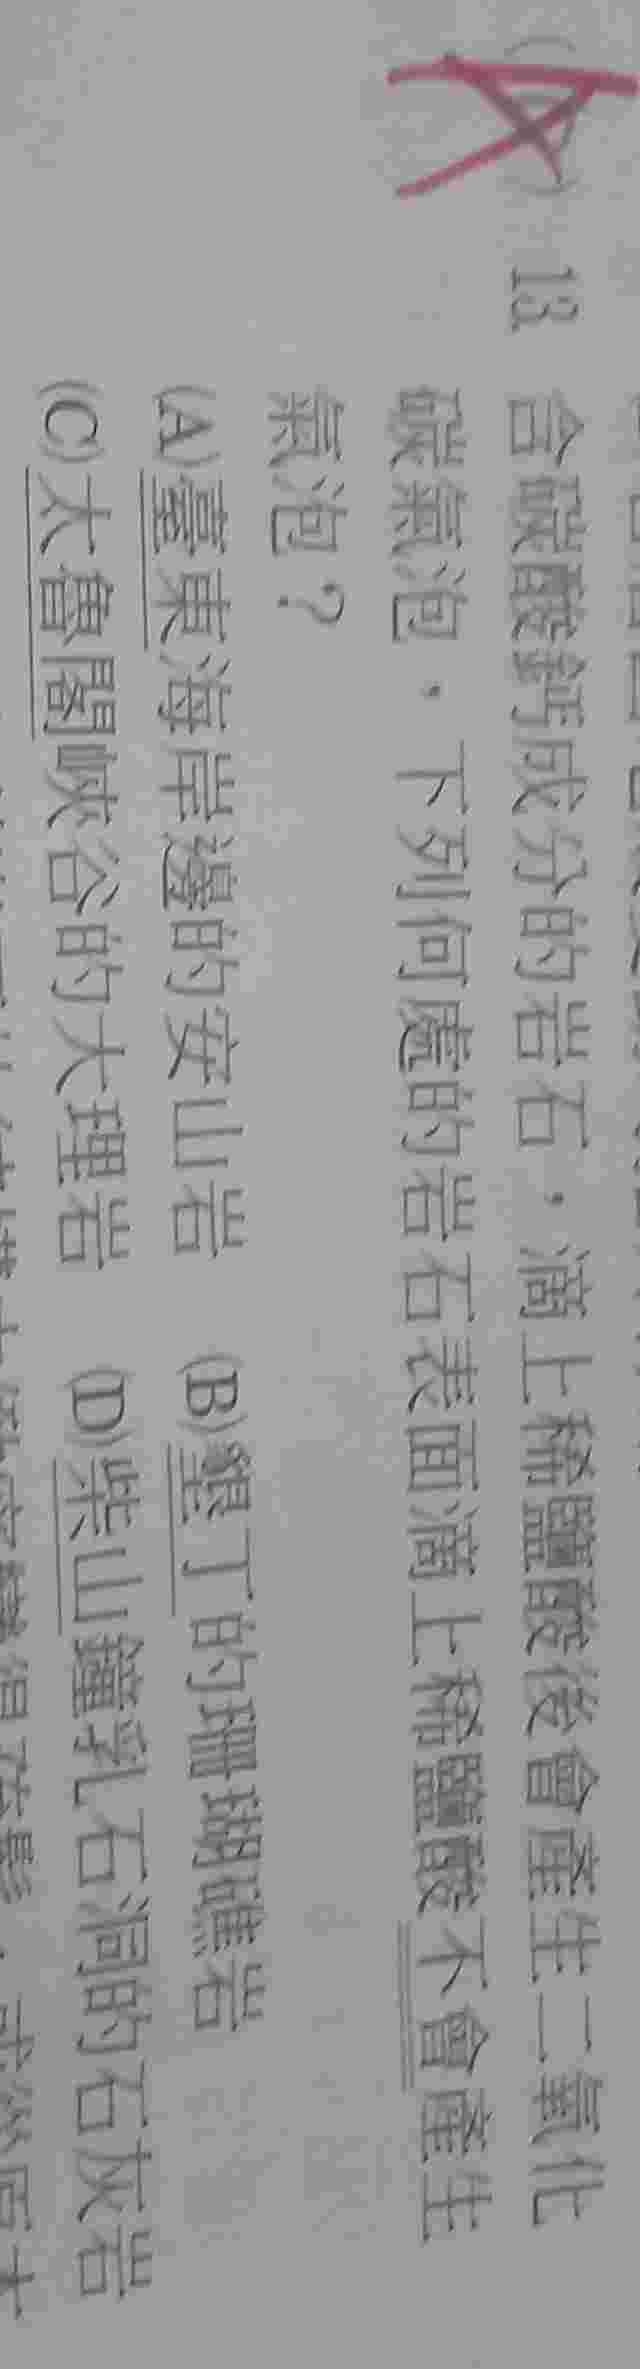 13 含碳酸鈣成分的岩石，滴上稀鹽酸後會產生二氧化
碳氣泡，下列何處的岩石表面滴上稀鹽酸不會產生
氣泡？
(A)臺東海岸邊的安山岩 (B)墾丁的珊瑚礁岩
(C)太魯閣峽谷的大理岩 (D)柴山鐘乳石洞的石灰岩